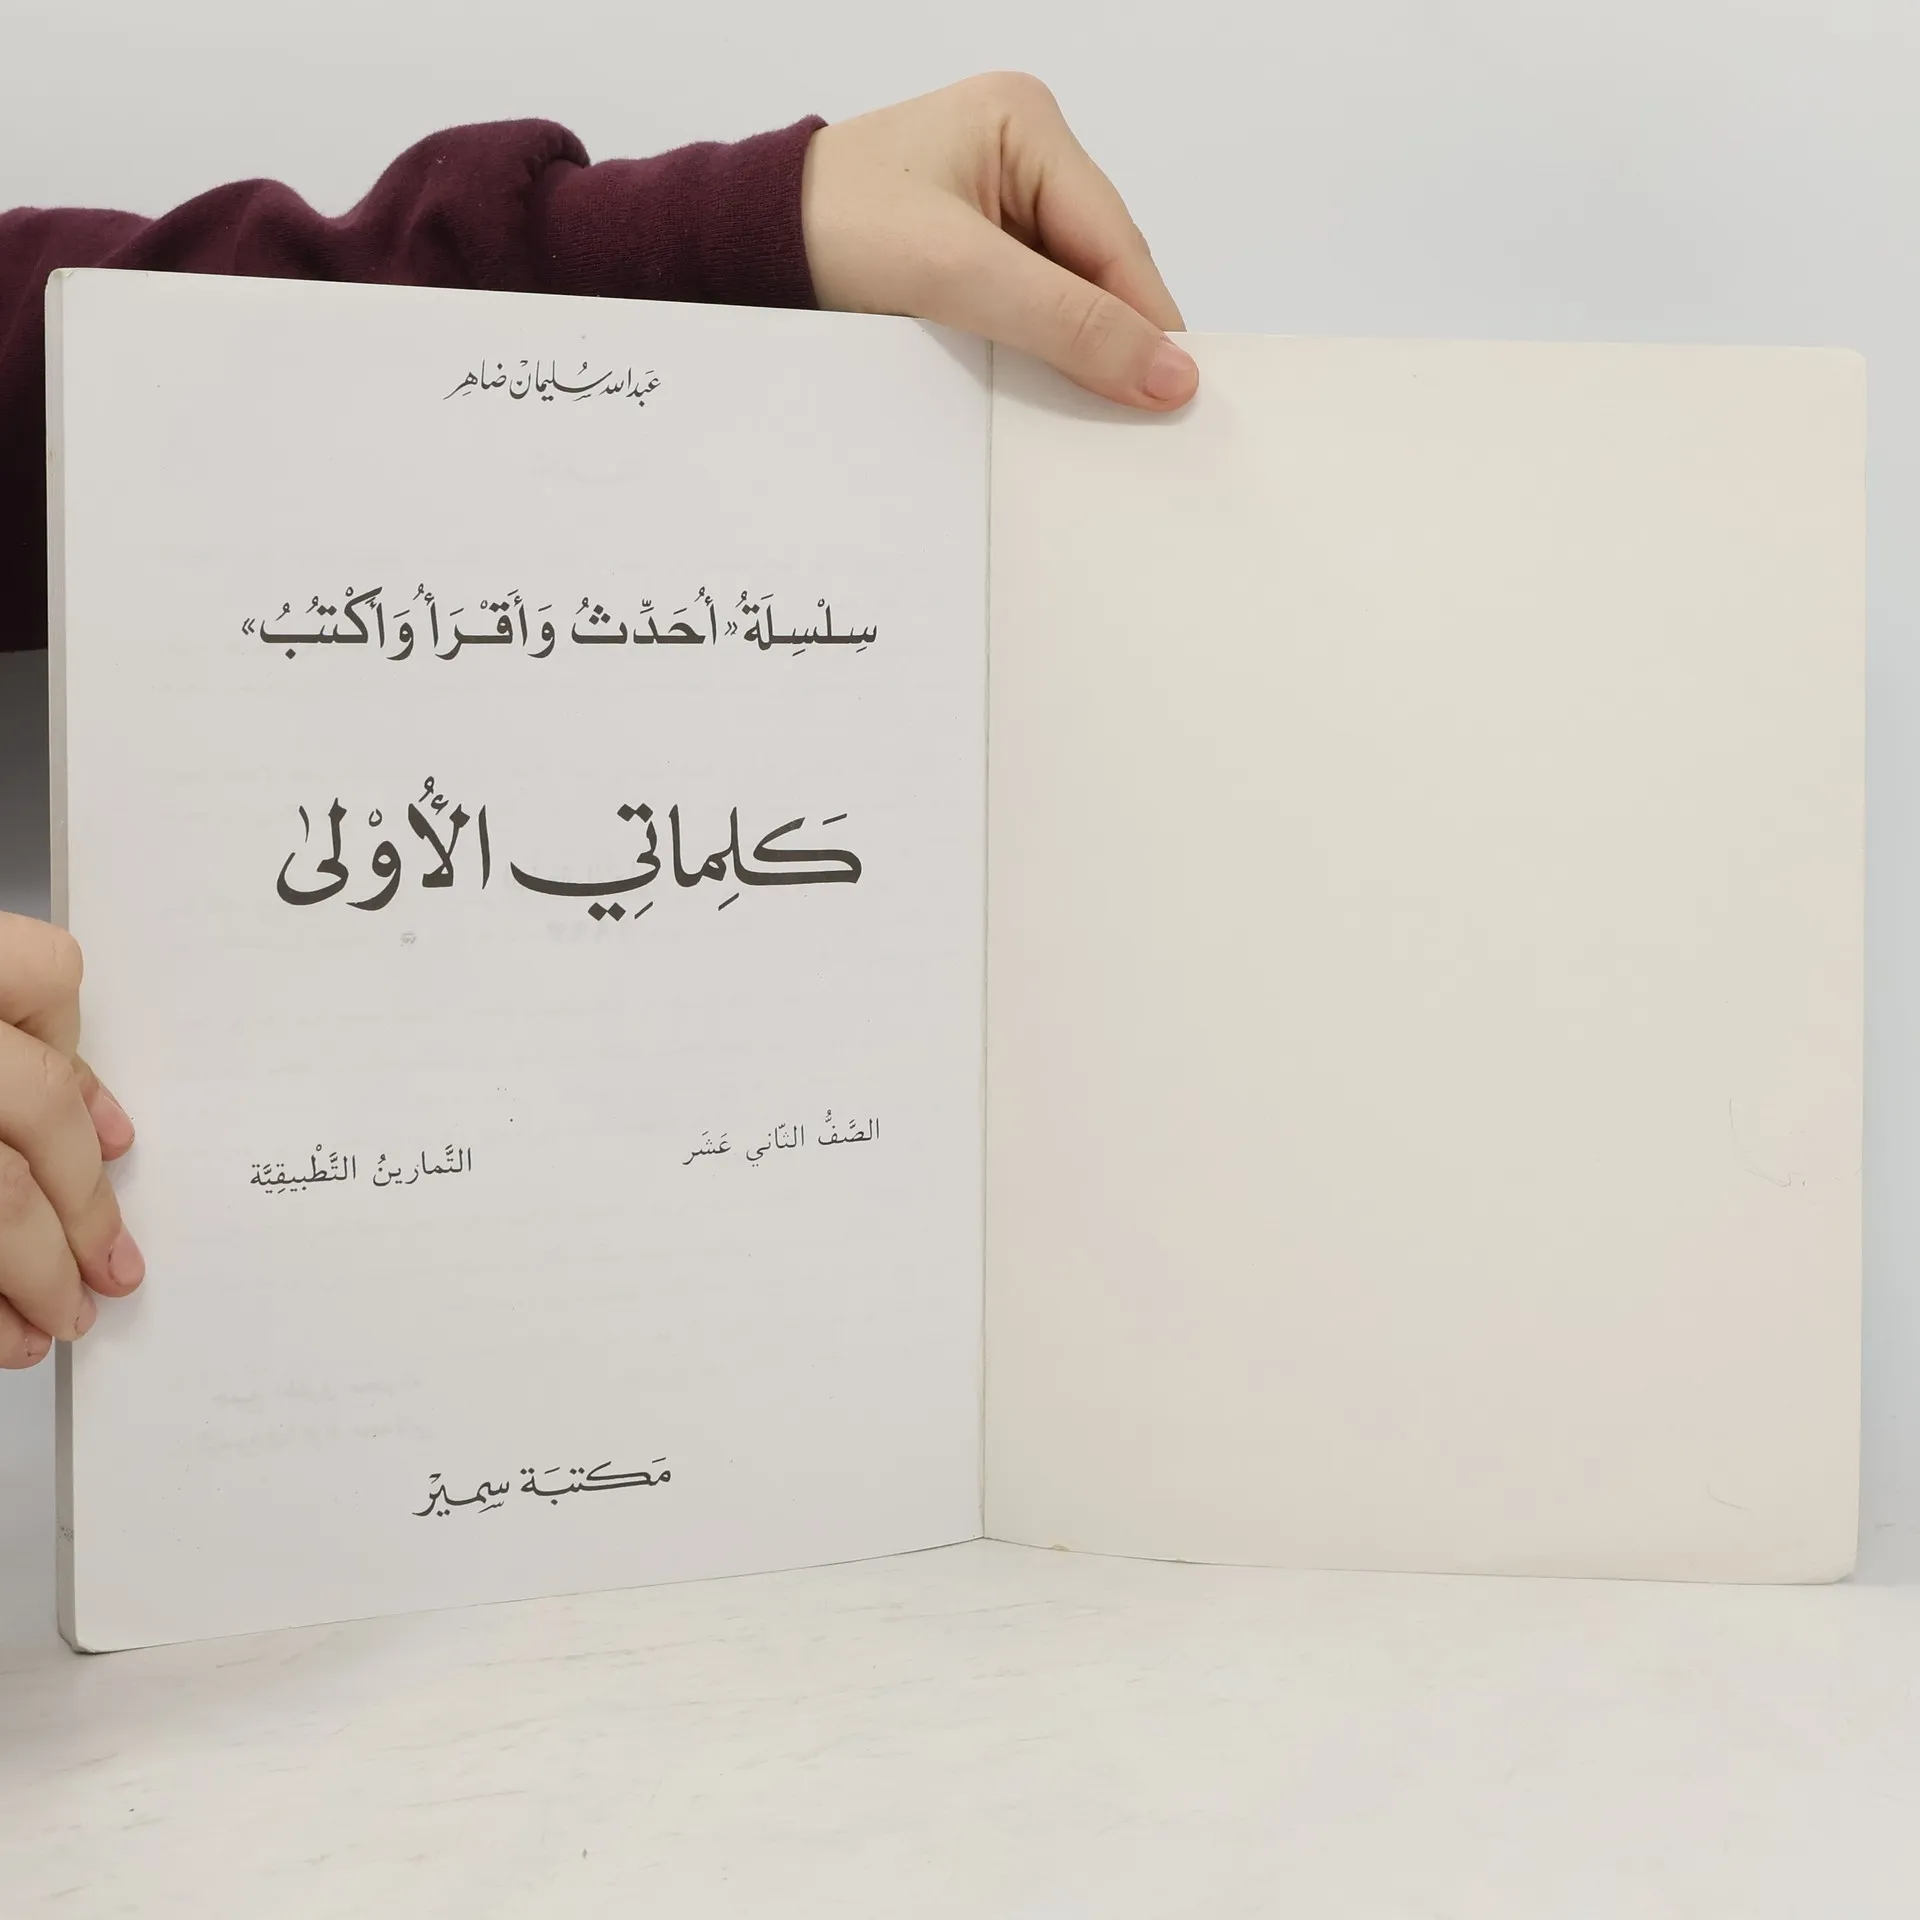 عَبدالله سُليمانْ ضاهِر
سِلْسِلَةُ «أُحَدِّثُ وَأَقْرَأُ وَأَكْتُبُ»
كَلِماتي الأُوْلىٰ
الصَّفُّ الثّاني عَشَر
التَّمارينُ التَّطْبيقِيَّة
مَكتبَة سِميرْ